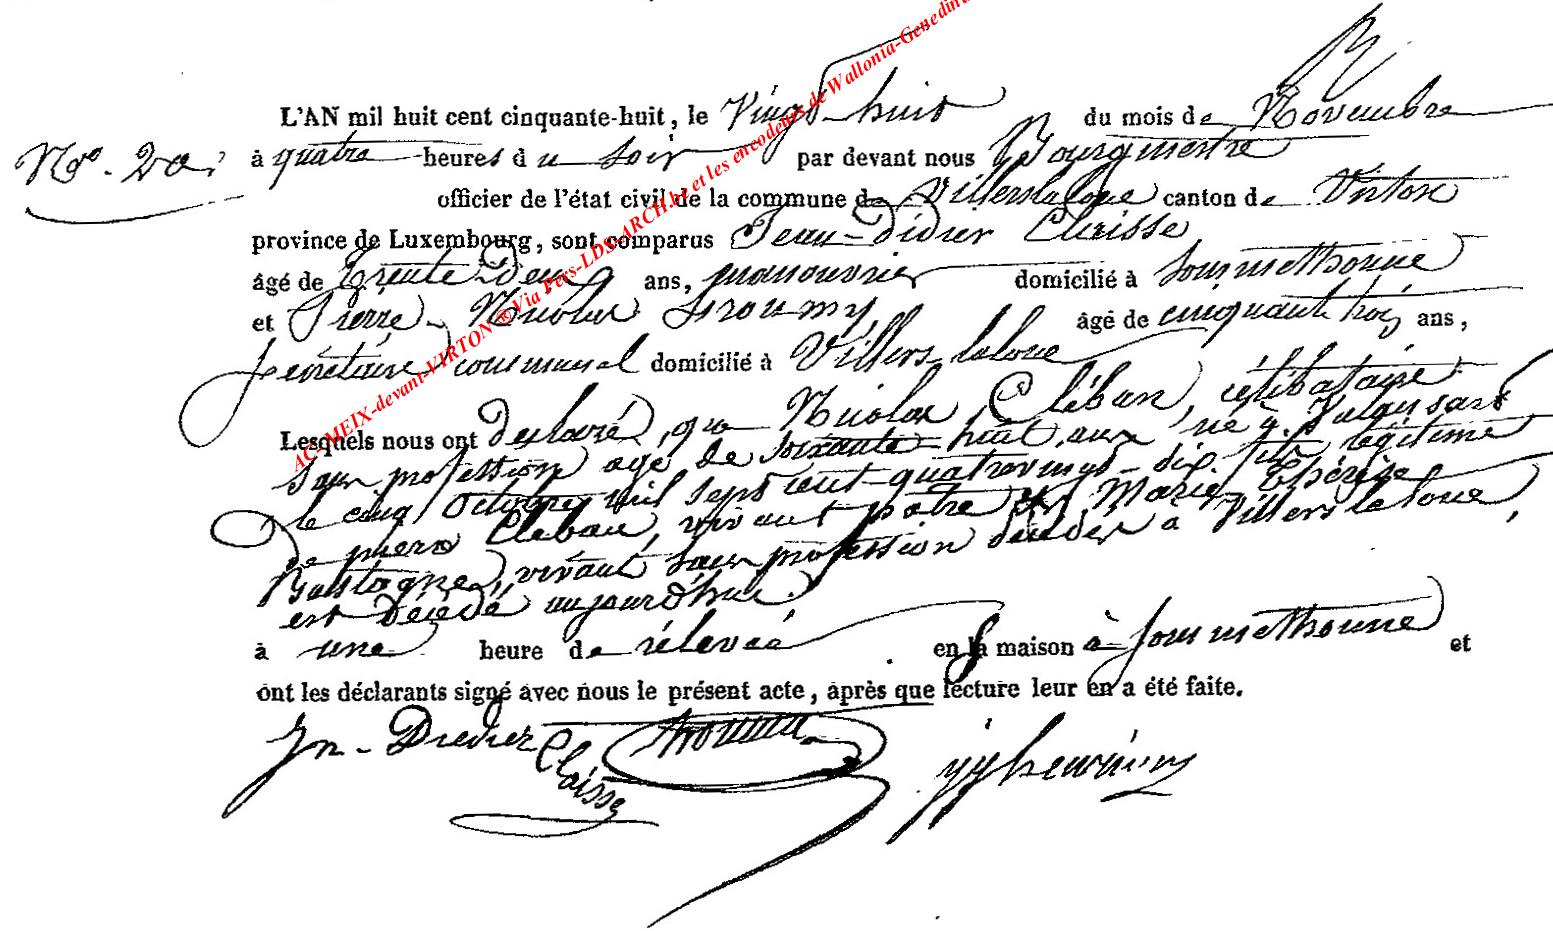 L'AN mil huit cent cinquante-huit, le Vingt-huit du mois de Novembre
à quatre heures du soir par devant nous Bourgmestre
officier de l'état civil de la commune de Villerslaloue canton de Virton
province de Luxembourg, sont comparus Jean-Didier Claisse
âgé de trente-Deux ans, manouvrier domicilié à Sommethonne
et Pierre Nicolas ans,
âgé de cinquante trois
secrétaire communal domicilié à Villers-laloue
Lesquels nous ont déclaré, que Nicolas Cléban, célibataire
sans profession agé de soixante-huit ans né à
le cinq Octobre mil sept cent-quatrevingt-dix. fils légitime
De pierre Cleban, vivant patre et Marie Thérèse
Bastogne, vivant sans profession décédés à Villerslaloue,
est Décédé aujourd'hui
à une heure de rélevée en la maison à Sommethonne et
ont les déclarants signé avec nous le présent acte, après que lecture leur en a été faite.
Jn-Didier Claisse
AC-MEIX-devant-VIRTON ® Via Pers-LDS-ARCH.be et les encodeurs de Wallonia-Genedinfo